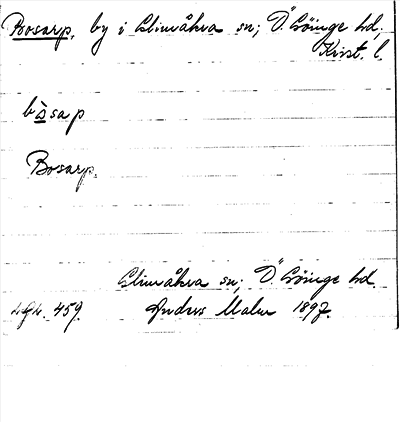 Bosarp, by i Glimåkra sn; Ö. Göinge hd,
Krist. l.
bòsap
Bosarp.
Glimåkra sn; Ö. Göinge hd.
459. Anders Malm 1897.